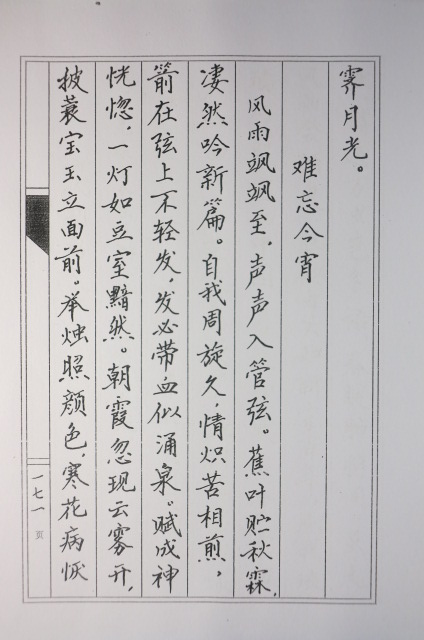 霁月光。
难忘今宵
风雨飒飒至，声声入管弦。蕉叶贮秋霖，
凄然吟新篇。自我周旋久，情炽苦相煎，
箭在弦上不轻发，发必带血似涌泉。赋成神
恍惚，一灯如豆室黯然。朝霞忽现云雾开，
披蓑宝玉立面前。举烛照颜色，寒花病恹
一七一
页